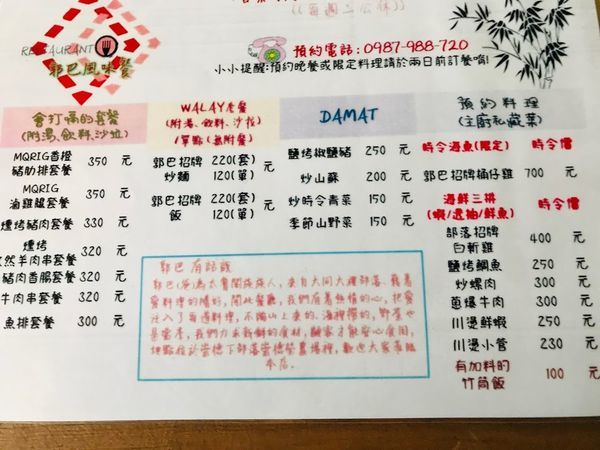 ((每週二公休))
RESTAURANT
郭巴風味餐
預約電話：0987-988-720
小小提醒:預約晚餐或限定料理請於兩日前訂餐唷!
會打嗝的套餐
(附湯、飲料、沙拉)
MQRIG香橙
豬肋排套餐 350 元
MQRIG
滷雞腿套餐 350 元
燻烤豬肉套餐 330 元
燻烤
然羊肉串套餐 320 元
豬肉香腸套餐 320 元
牛肉串套餐 320 元
魚排套餐 300 元
WALAY套餐
(附湯、飲料、沙拉)
(單點:無附餐)
郭巴招牌 220(套)
炒麵 120(單) 元
郭巴招牌 220(套)
飯 120(單) 元
DAMAT
鹽烤椒鹽豬 250 元
炒山蘇 200 元
炒時令青菜 150 元
季節山野菜 150 元
預約料理
(主廚私藏菜)
時令海魚(限定) 時令價
郭巴招牌桶仔雞 700 元
海鮮三拼
(蝦/透抽/鮮魚) 時令價
部落招牌
白斬雞 400 元
鹽烤鯛魚 250 元
炒螺肉 300 元
蔥爆牛肉 300 元
川燙鮮蝦 250 元
川燙小管 230 元
有加料的
竹筒飯 100 元
郭巴 有話說
郭巴(爸)為太魯閣族族人，來自大同大禮部落、藉著
愛料理的嗜好，開此餐廳，我們有著熱情的心，把愛
注入了每道料理，不論山上來的、海裡撈的，野菜也
是當季，我們力求新鮮的食材，顧客才能安心食用，
地點位於崇德下部落崇德營農場裡，歡迎大家蒞臨
本店。